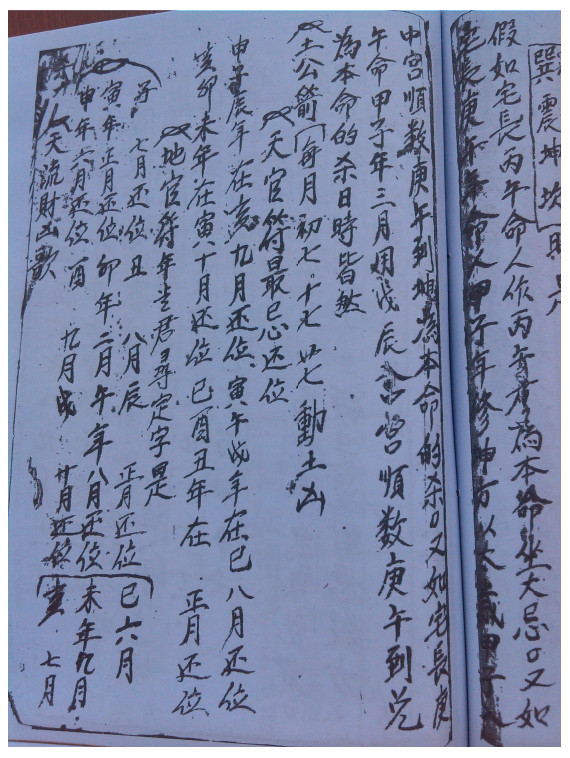 巽震坤坎
假如宅長丙午命人作丙 為本命坐大忌又如
宅長庚午年命人甲子年修坤方以太歲甲子入
中宮順數庚午到坤為本命的杀又如宅長庚
午命甲子年三月用戊辰入中宮順數庚午到兑
為本命的杀日時皆然
土公箭 每月初七十七廿七動土凶
天官符最忌还位
申子辰年在亥九月还位寅午戌年在巳八月还位
亥卯未年在寅十月还位巳酉丑年在 正月还位
地官符年主君尋定字是
子 七月还位丑 八月辰 正月还位 巳六月
寅年 正月还位卯年 二月午年八月还位 未年九月
申年 六月还位酉 九月戌 廿月还位 亥 七月
天流財凶歌